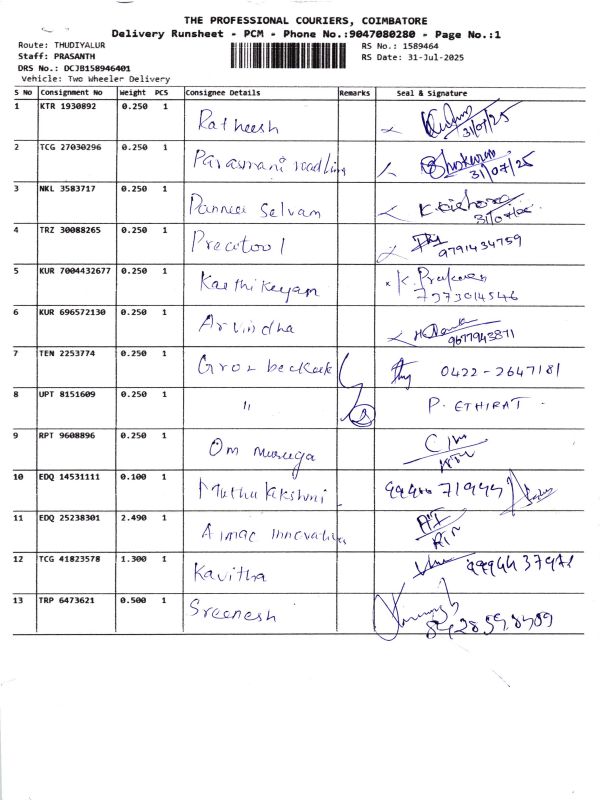 THE PROFESSIONAL COURIERS, COIMBATORE
Delivery Runsheet - PCM - Phone No.:9047080280 - Page No.:1
Route: THUDIYALUR RS No.: 1589464
Staff: PRASANTH RS Date: 31-Jul-2025
DRS No.: DCJB158946401
Vehicle: Two Wheeler Delivery
S No Consignment No Weight PCS Consignee Details Remarks Seal & Signature
1 KTR 1930892 0.250 1 Ratheesh 31/07/25
2 TCG 27030296 0.250 1 Parasmani roadlin 31/07/25
3 NKL 3583717 0.250 1 Pannee Selvam
4 TRZ 30088265 0.250 1 Precitool 9791434759
5 KUR 7004432677 0.250 1 Karthikeyan 7373014546
6 KUR 696572130 0.250 1 Arvindha 9677943871
7 TEN 2253774 0.250 1 Groz beckert 0422-2647181
8 UPT 8151609 0.250 1 " P. ETHIRAT.
9 RPT 9608896 0.250 1 Om muruga
10 EDQ 14531111 0.100 1 Muthu lakshmi
11 EDQ 25238301 2.490 1 Aimac innovative
12 TCG 41823578 1.300 1 Kavitha
13 TRP 6473621 0.500 1 Sreenesh